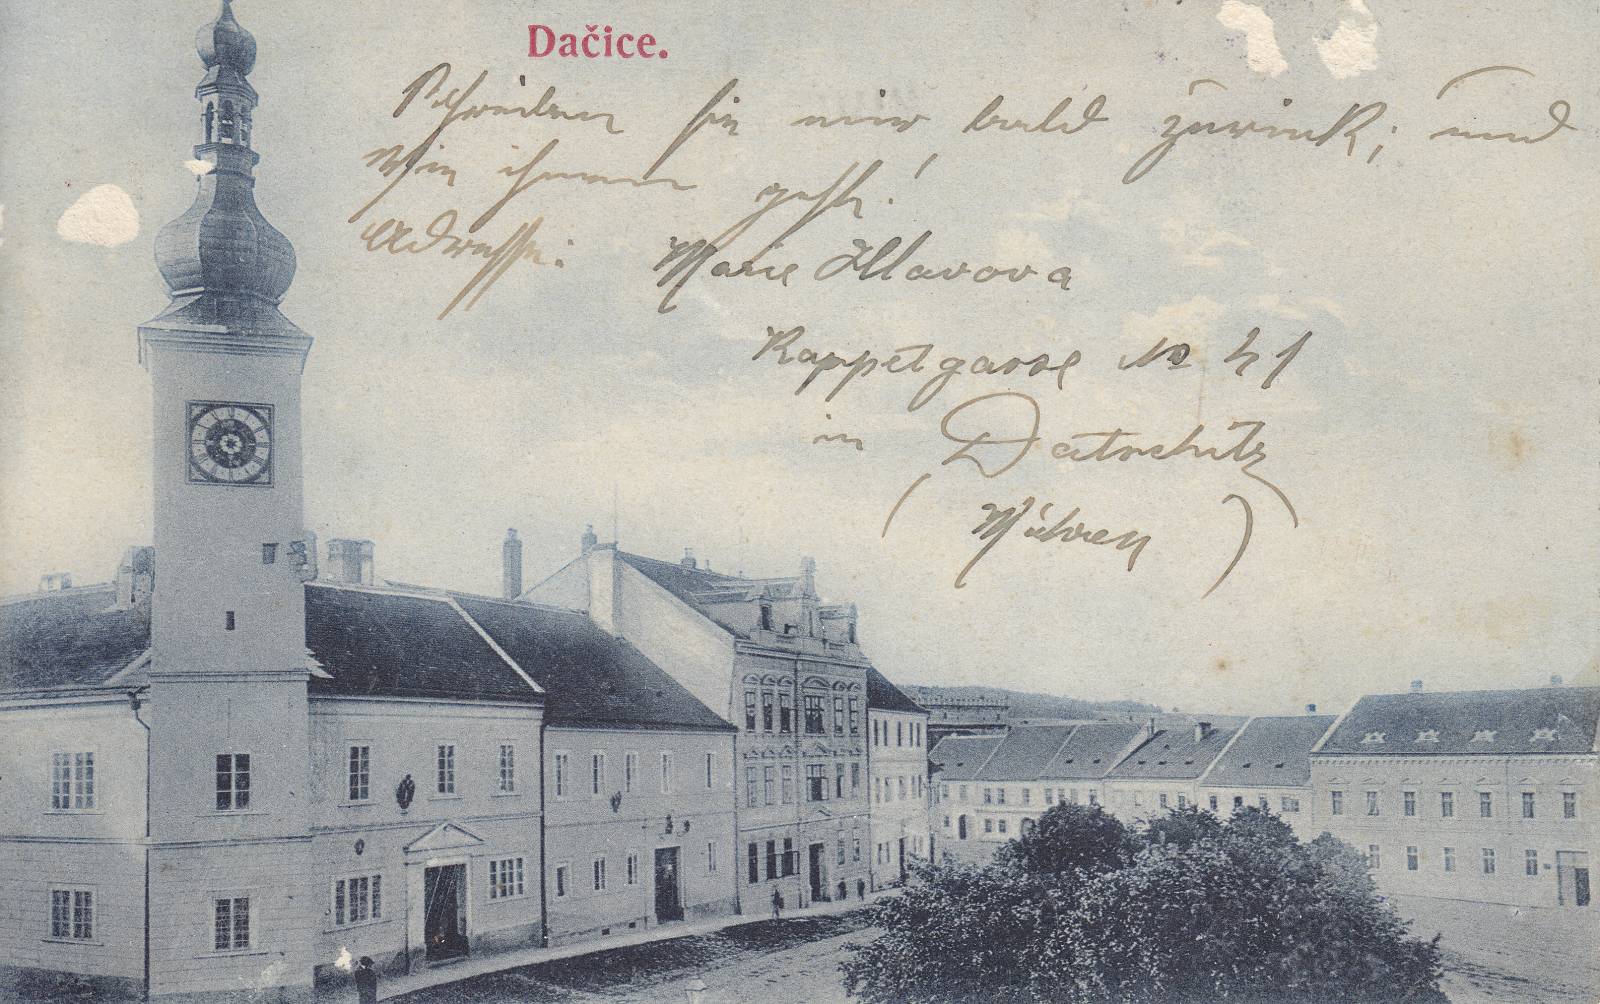 Dačice.
Schreiben sie mir bald zurück, und
Wie ihnen geht!
Adresse:
Marie Hlavova
Rappetgasse No 41
in Datschitz
(Mähren)